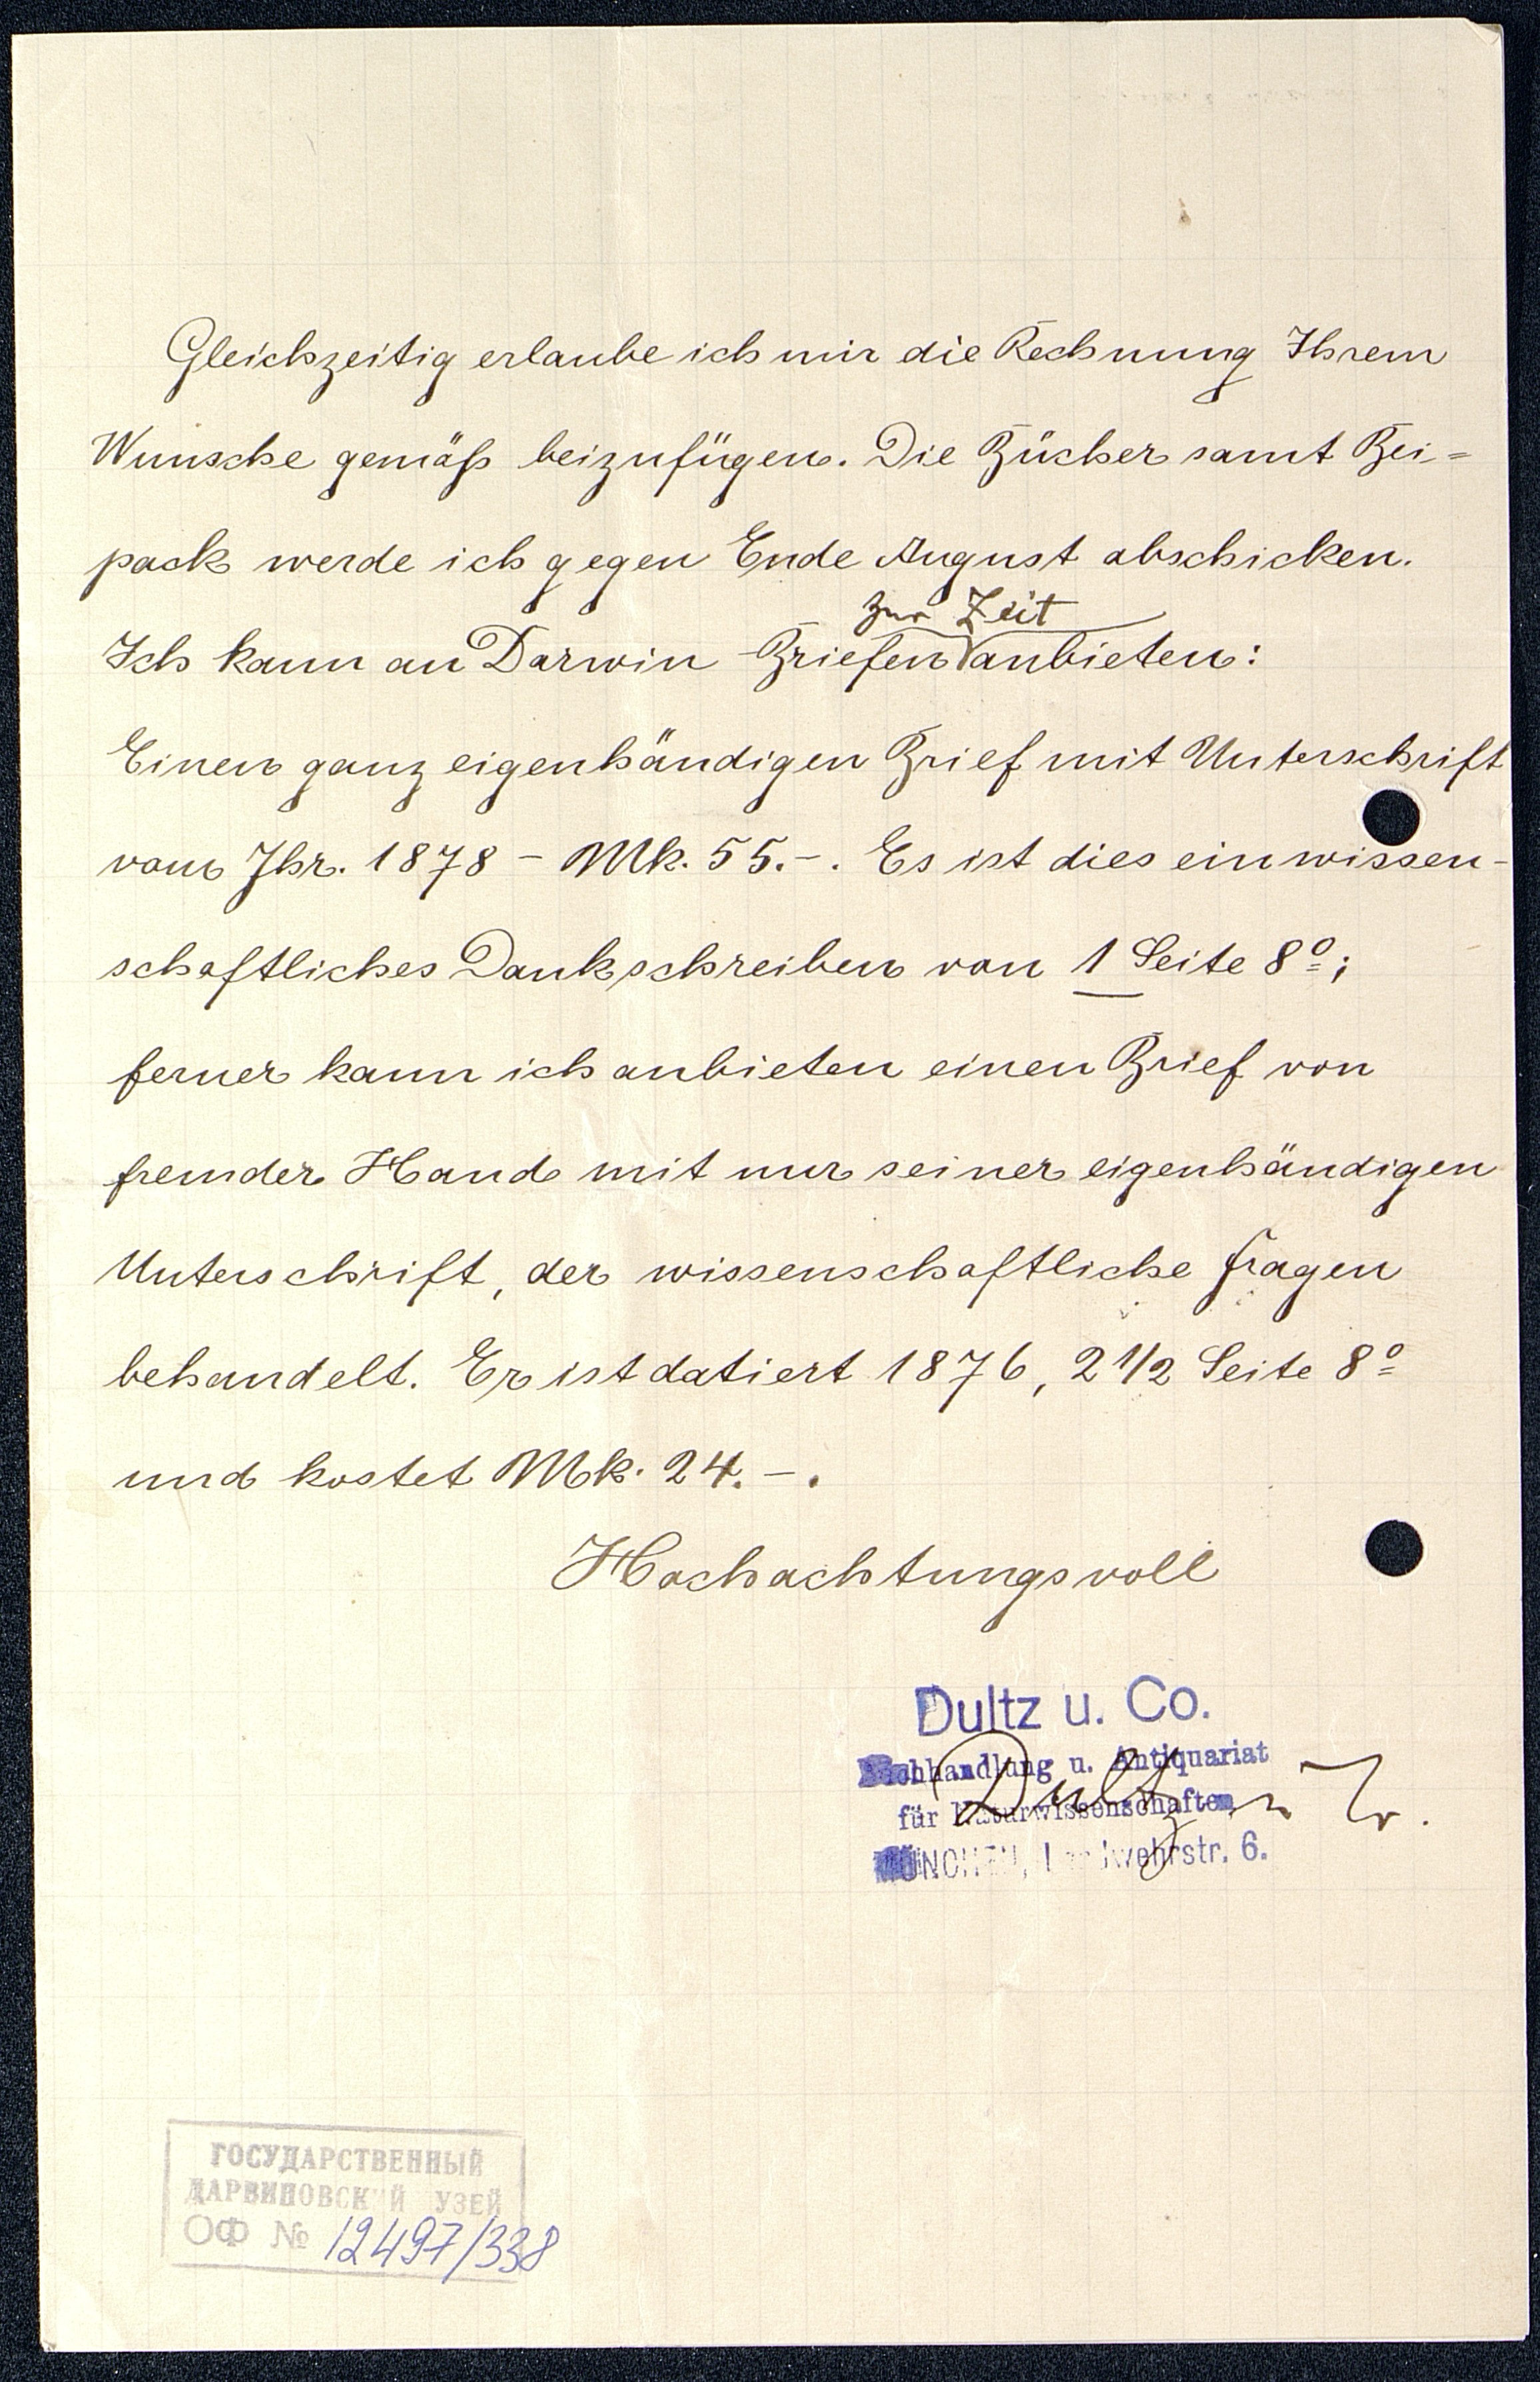 Gleichzeitig erlaube ich mir die Rechnung Ihrem
Wunsche gemäß beizufügen. Die Bücher samt Bei=
pack werde ich gegen Ende August abschicken.
zur Zeit
Ich kann an Darwin-Briefen anbieten:
Einen ganz eigenhändigen Brief mit Unterschrift
vom Jhr. 1878 - Mk. 55.-. Es ist dies ein wissen-
schaftliches Dankschreiben von 1 Seite 8º;
ferner kann ich anbieten einen Brief von
fremder Hand mit nur seiner eigenhändigen
Unterschrift, der wissenschaftliche Fragen
behandelt. Er ist datiert 1876, 2 1/2 Seite 8º
und kostet Mk. 24.-.
Hochachtungsvoll
Dultz u. Co.
Buchhandlung u. Antiquariat
für Naturwissenschaften
MÜNCHEN, Landwehrstr. 6.
ГОСУДАРСТВЕННЫЙ
ДАРВИНОВСКИЙ МУЗЕЙ
ОФ № 12497/338